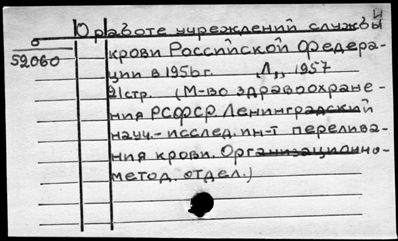 О работе учреждений службы
52060
крови Российской Федера-
ции в 1956г. Л., 1957
21стр. (М-во здравоохране-
ния РСФСР Ленинградский
науч.-исслед. ин-т перелива-
ния крови. Организационно-
метод. отдел.)